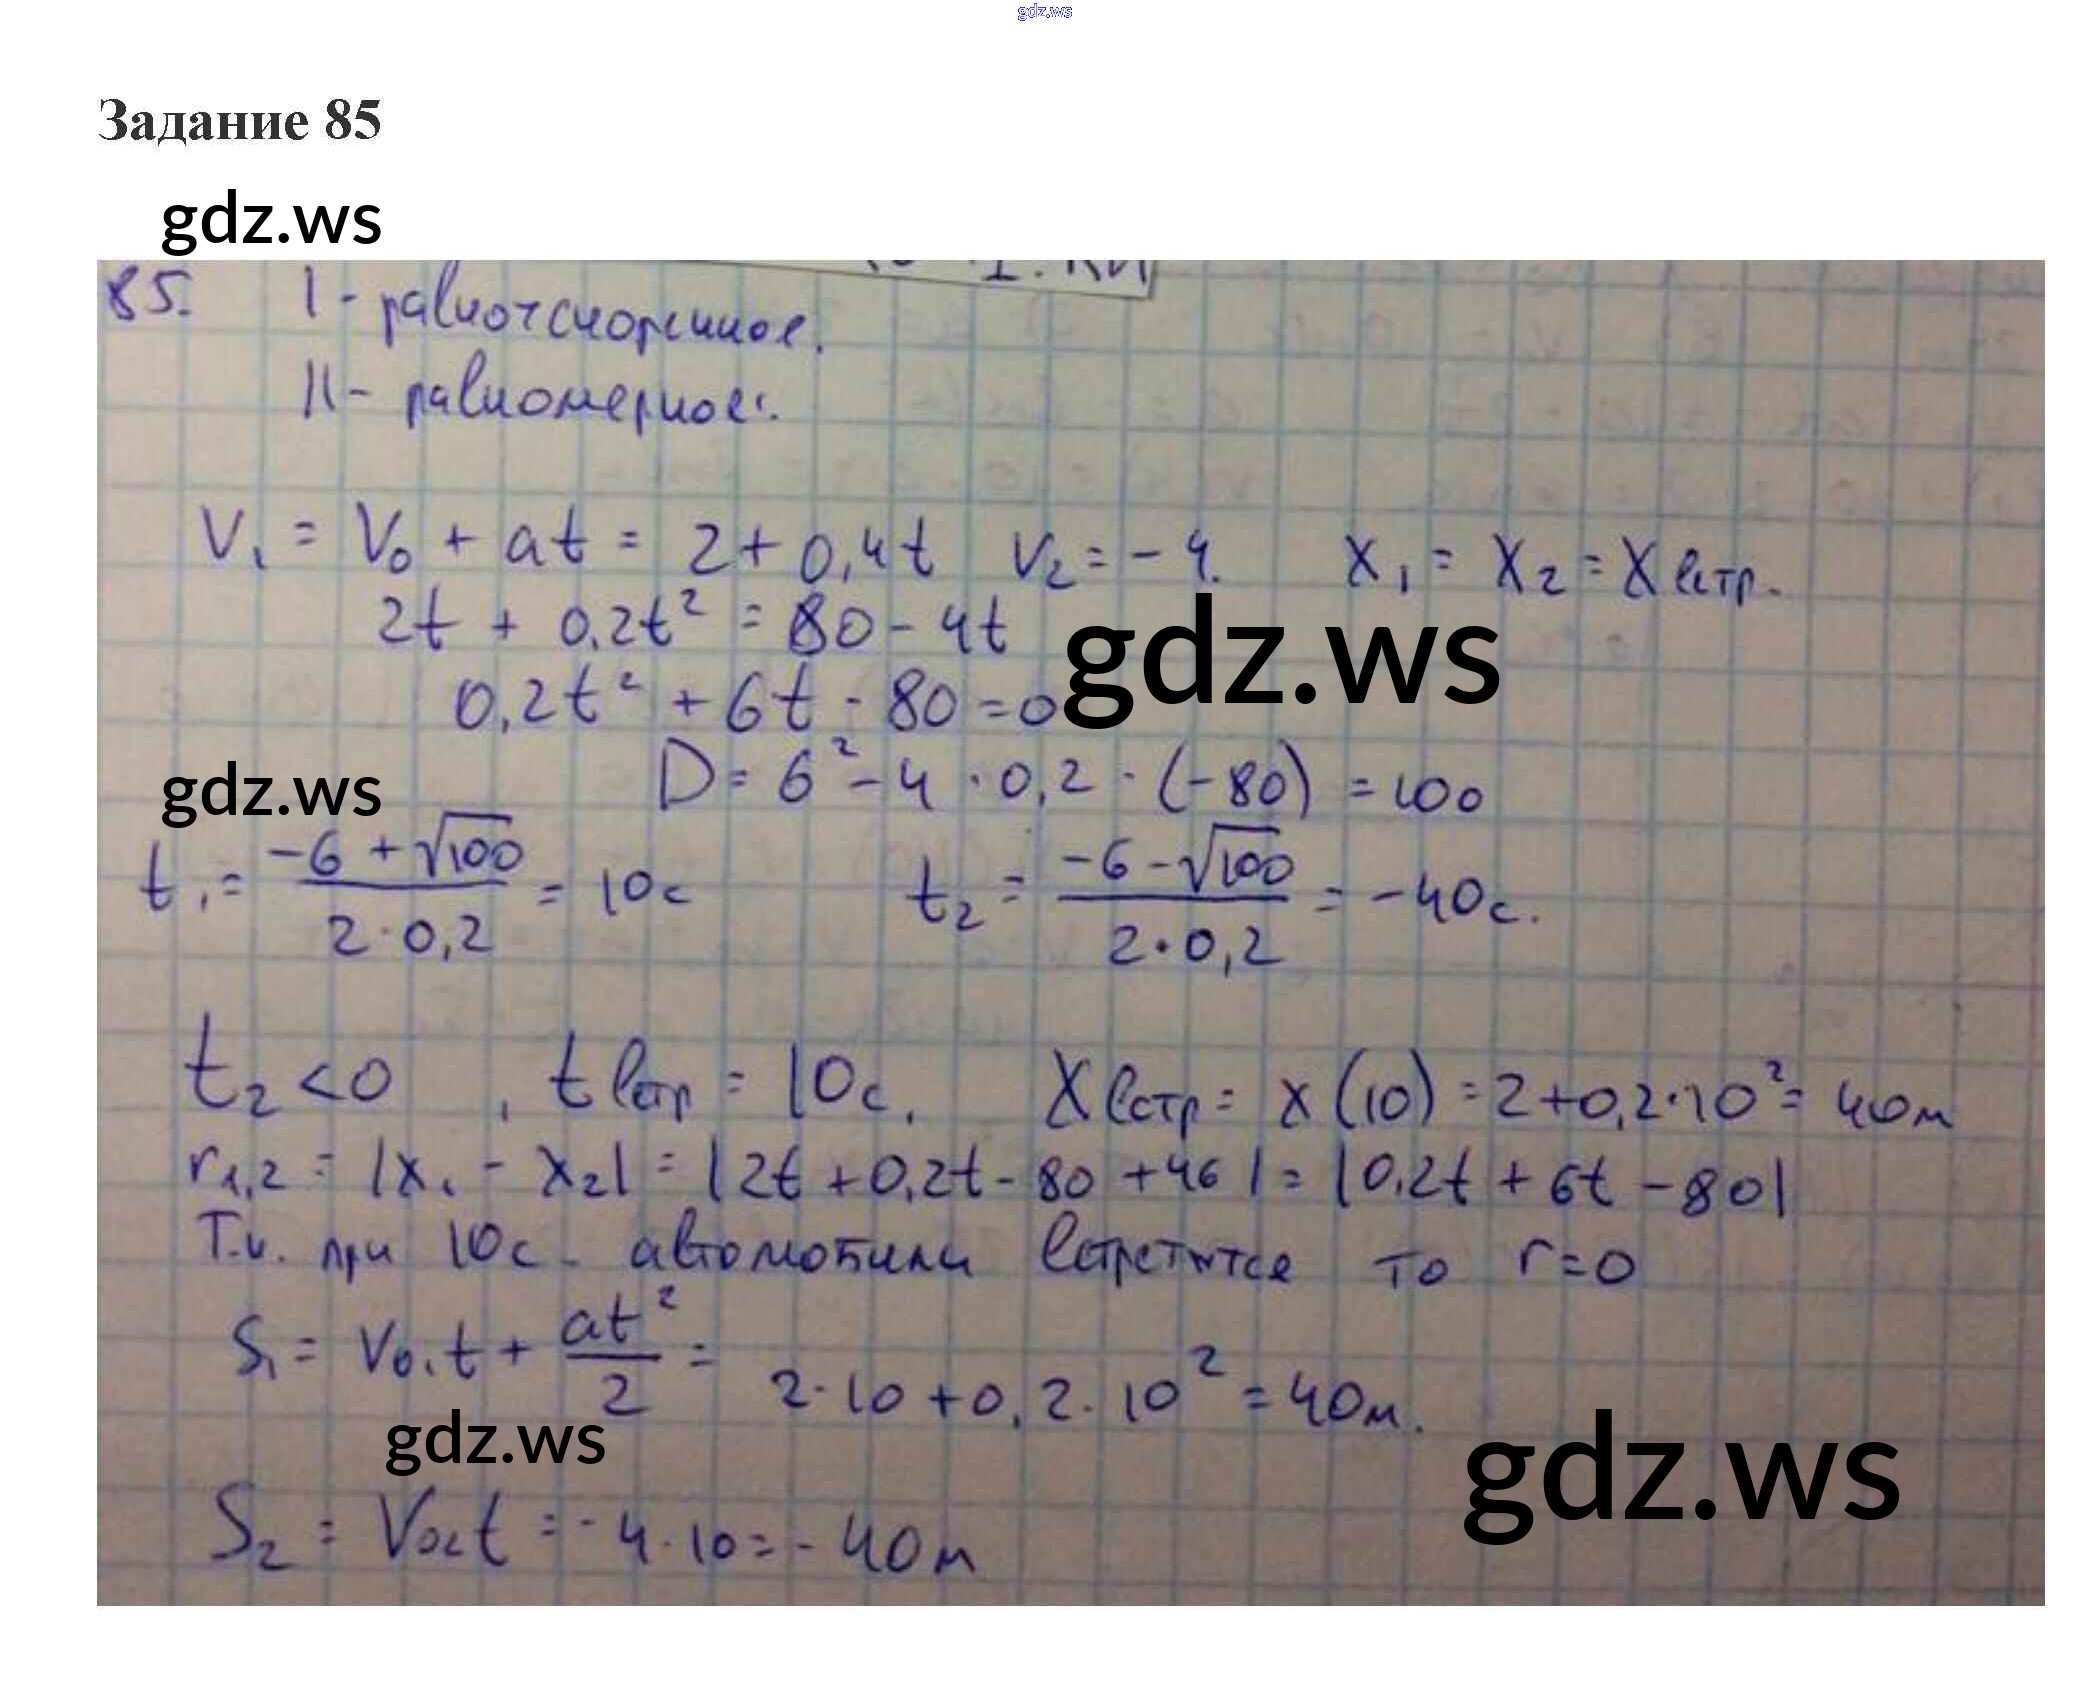 gdz.ws
Задание 85
gdz.ws
85. I - равноускоренное.
II - равномерное.
V₁ = V₀ + at = 2 + 0,4t V₂ = - 4. X₁ = X₂ = X встр.
2t + 0.2t² = 80 - 4t
gdz.ws
0,2t² + 6t - 80 = 0
D = 6² - 4 · 0,2 · (-80) = 100
gdz.ws
t₁ = (-6 + √100) / (2 · 0,2) = 10с t₂ = (-6 - √100) / (2 · 0,2) = -40с.
t₂ < 0 , t встр = 10с. X встр = x (10) = 2 + 0,2 · 10² = 40м
r₁,₂ = |x₁ - x₂| = |2t + 0,2t - 80 + 4б| = |0.2t + 6t - 80|
Т.к. при 10с - автомобили встретятся то r = 0
S₁ = V₀₁t + at²/2 = 2 · 10 + 0,2 · 10² = 40м.
gdz.ws
gdz.ws
S₂ = V₀₂t = - 4 · 10 = - 40м